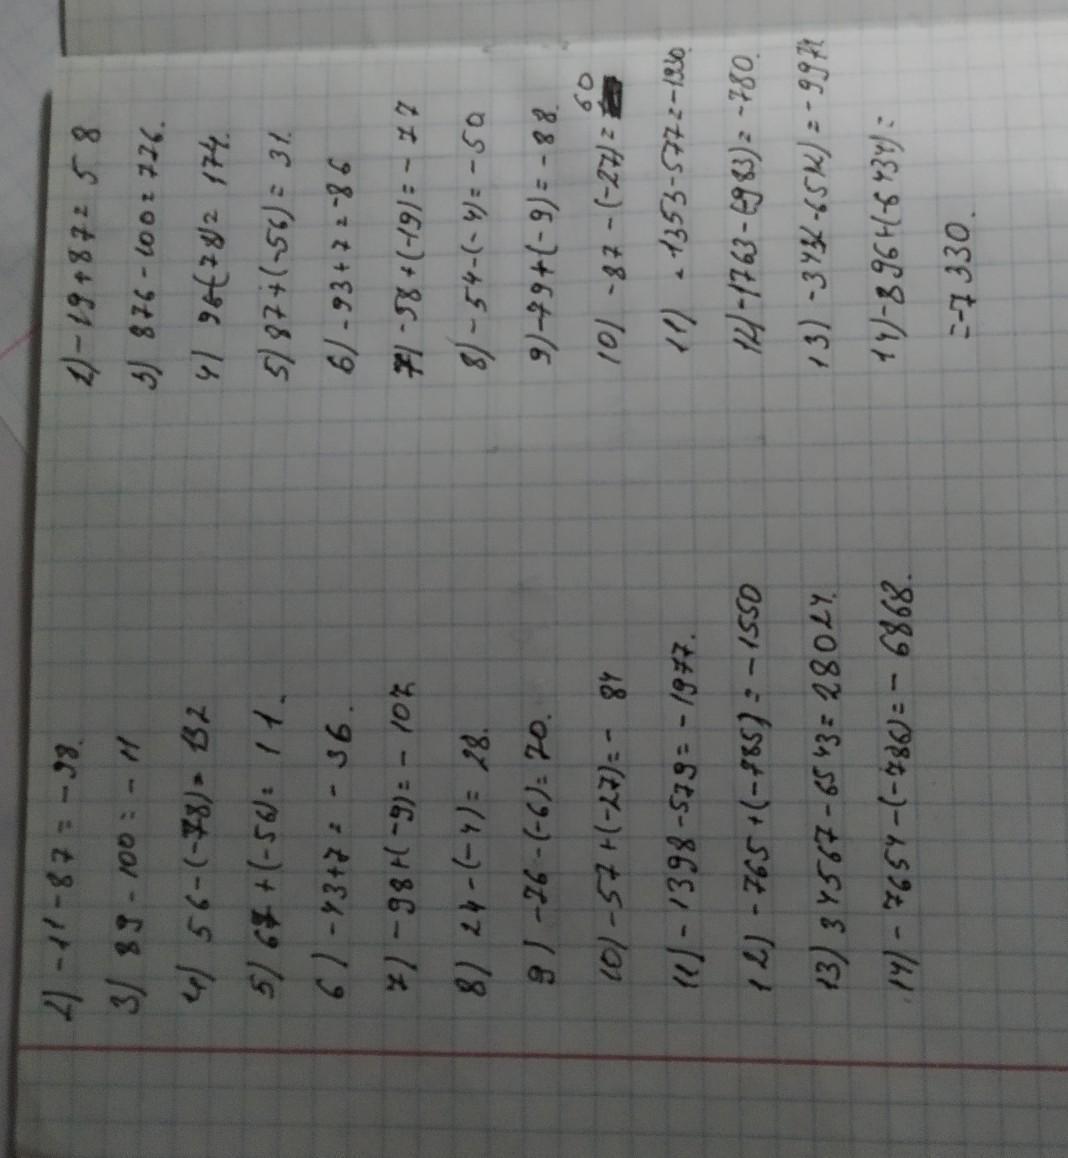 2) -11-87=-98.
3) 89-100=-11
4) 56-(-78)=132
5) 67+(-56)=11.
6) -43+7=-36.
7) -98+(-9)=-107
8) 24-(-4)=28.
9) -76-(-6)=70.
10) -57+(-27)=-84
11) -1398-579=-1977.
12) -765+(-785)=-1550
13) 34567-6543=28024.
14) -7654-(-786)=-6868.
2) -19+87=58
3) 876-100=776.
4) 96-(78)=174.
5) 87+(-56)=31.
6) -93+7=-86
7) -58+(-19)=-77
8) -54-(-4)=-50
9) -79+(-9)=-88.
10) -87-(-27)=60
11) -1353-577=-1930.
12) -1763-(-983)=-780.
14) -896+(-6434)=
=-7330.